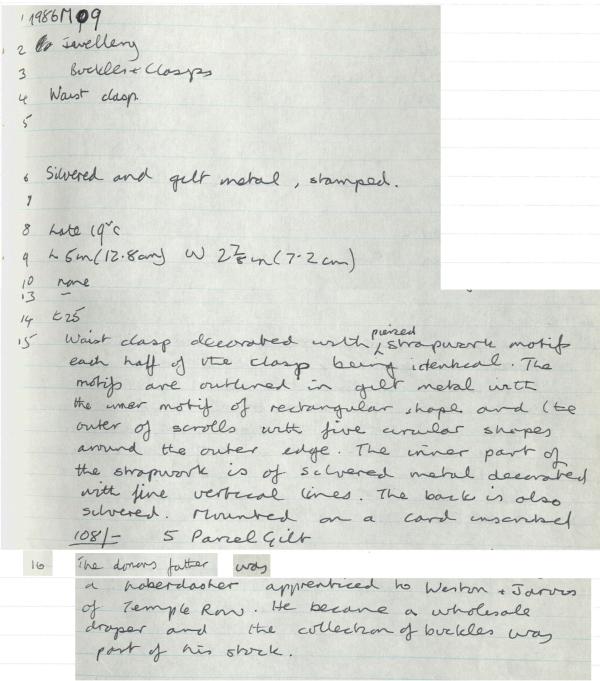 1 1986M 9
2 Jewellery
3 Buckles + Clasps
4 Waist clasp.
5
6 Silvered and gilt metal, stamped.
7
8 Late 19thc
9 L 5in (12.8cm) W 2⅞in (7.2cm)
10 none
13 –
14 £25
15 Waist clasp decorated with pierced strapwork motif
each half of the clasp being identical. The
motifs are outlined in gilt metal with
the inner motif of rectangular shape and the
outer of scrolls with five circular shapes
around the outer edge. The inner part of
the strapwork is of silvered metal decorated
with fine vertical lines. The back is also
silvered. Mounted on a card inscribed
108/- 5 Parcel Gilt
16 The donors father was
a haberdasher apprenticed to Weston + Jarvis
of Temple Row. He became a wholesale
draper and the collection of buckles was
part of his stock.